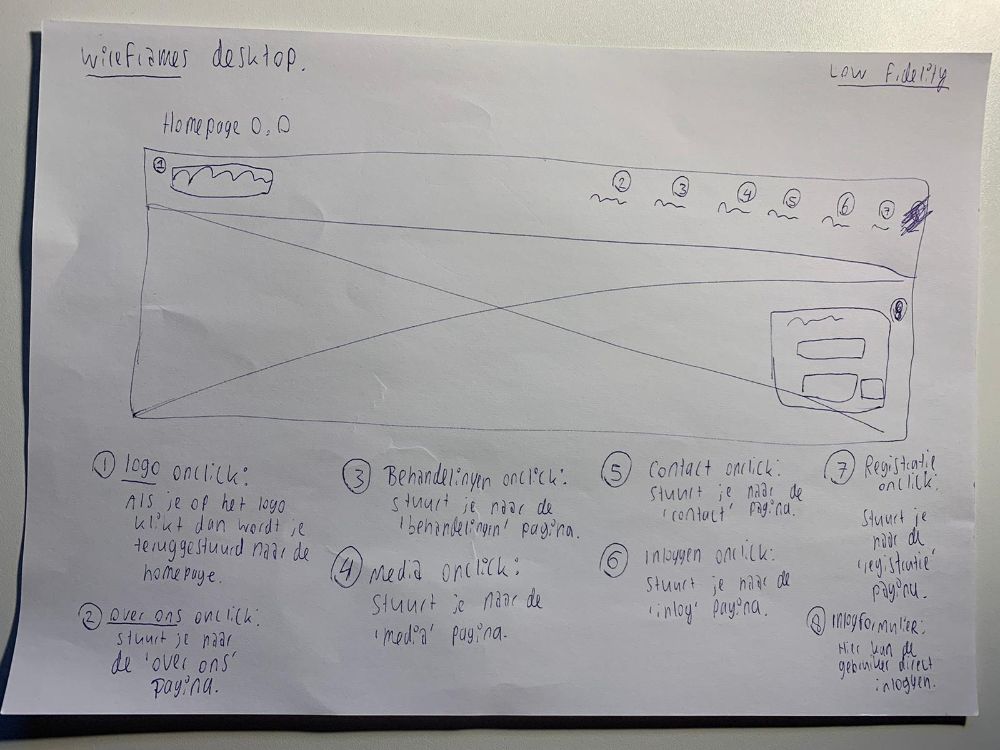 wireframes desktop.
Low Fidelity
Homepage 0,0
1
2
3
4
5
6
7
8
1 logo onclick:
Als je op het logo
klikt dan wordt je
teruggestuurd naar de
homepage.
2 over ons onclick:
stuurt je naar
de 'over ons'
pagina.
3 Behandelingen onclick:
stuurt je naar de
'behandelingen' pagina.
4 Media onclick:
stuurt je naar de
'media' pagina.
5 Contact onclick:
stuurt je naar de
'contact' pagina.
6 Inloggen onclick:
stuurt je naar de
'inlog' pagina.
7 Registratie
onclick:
stuurt je
naar de
'registratie'
pagina.
8 Inlogformulier:
Hier kan de
gebruiker direct
inloggen.